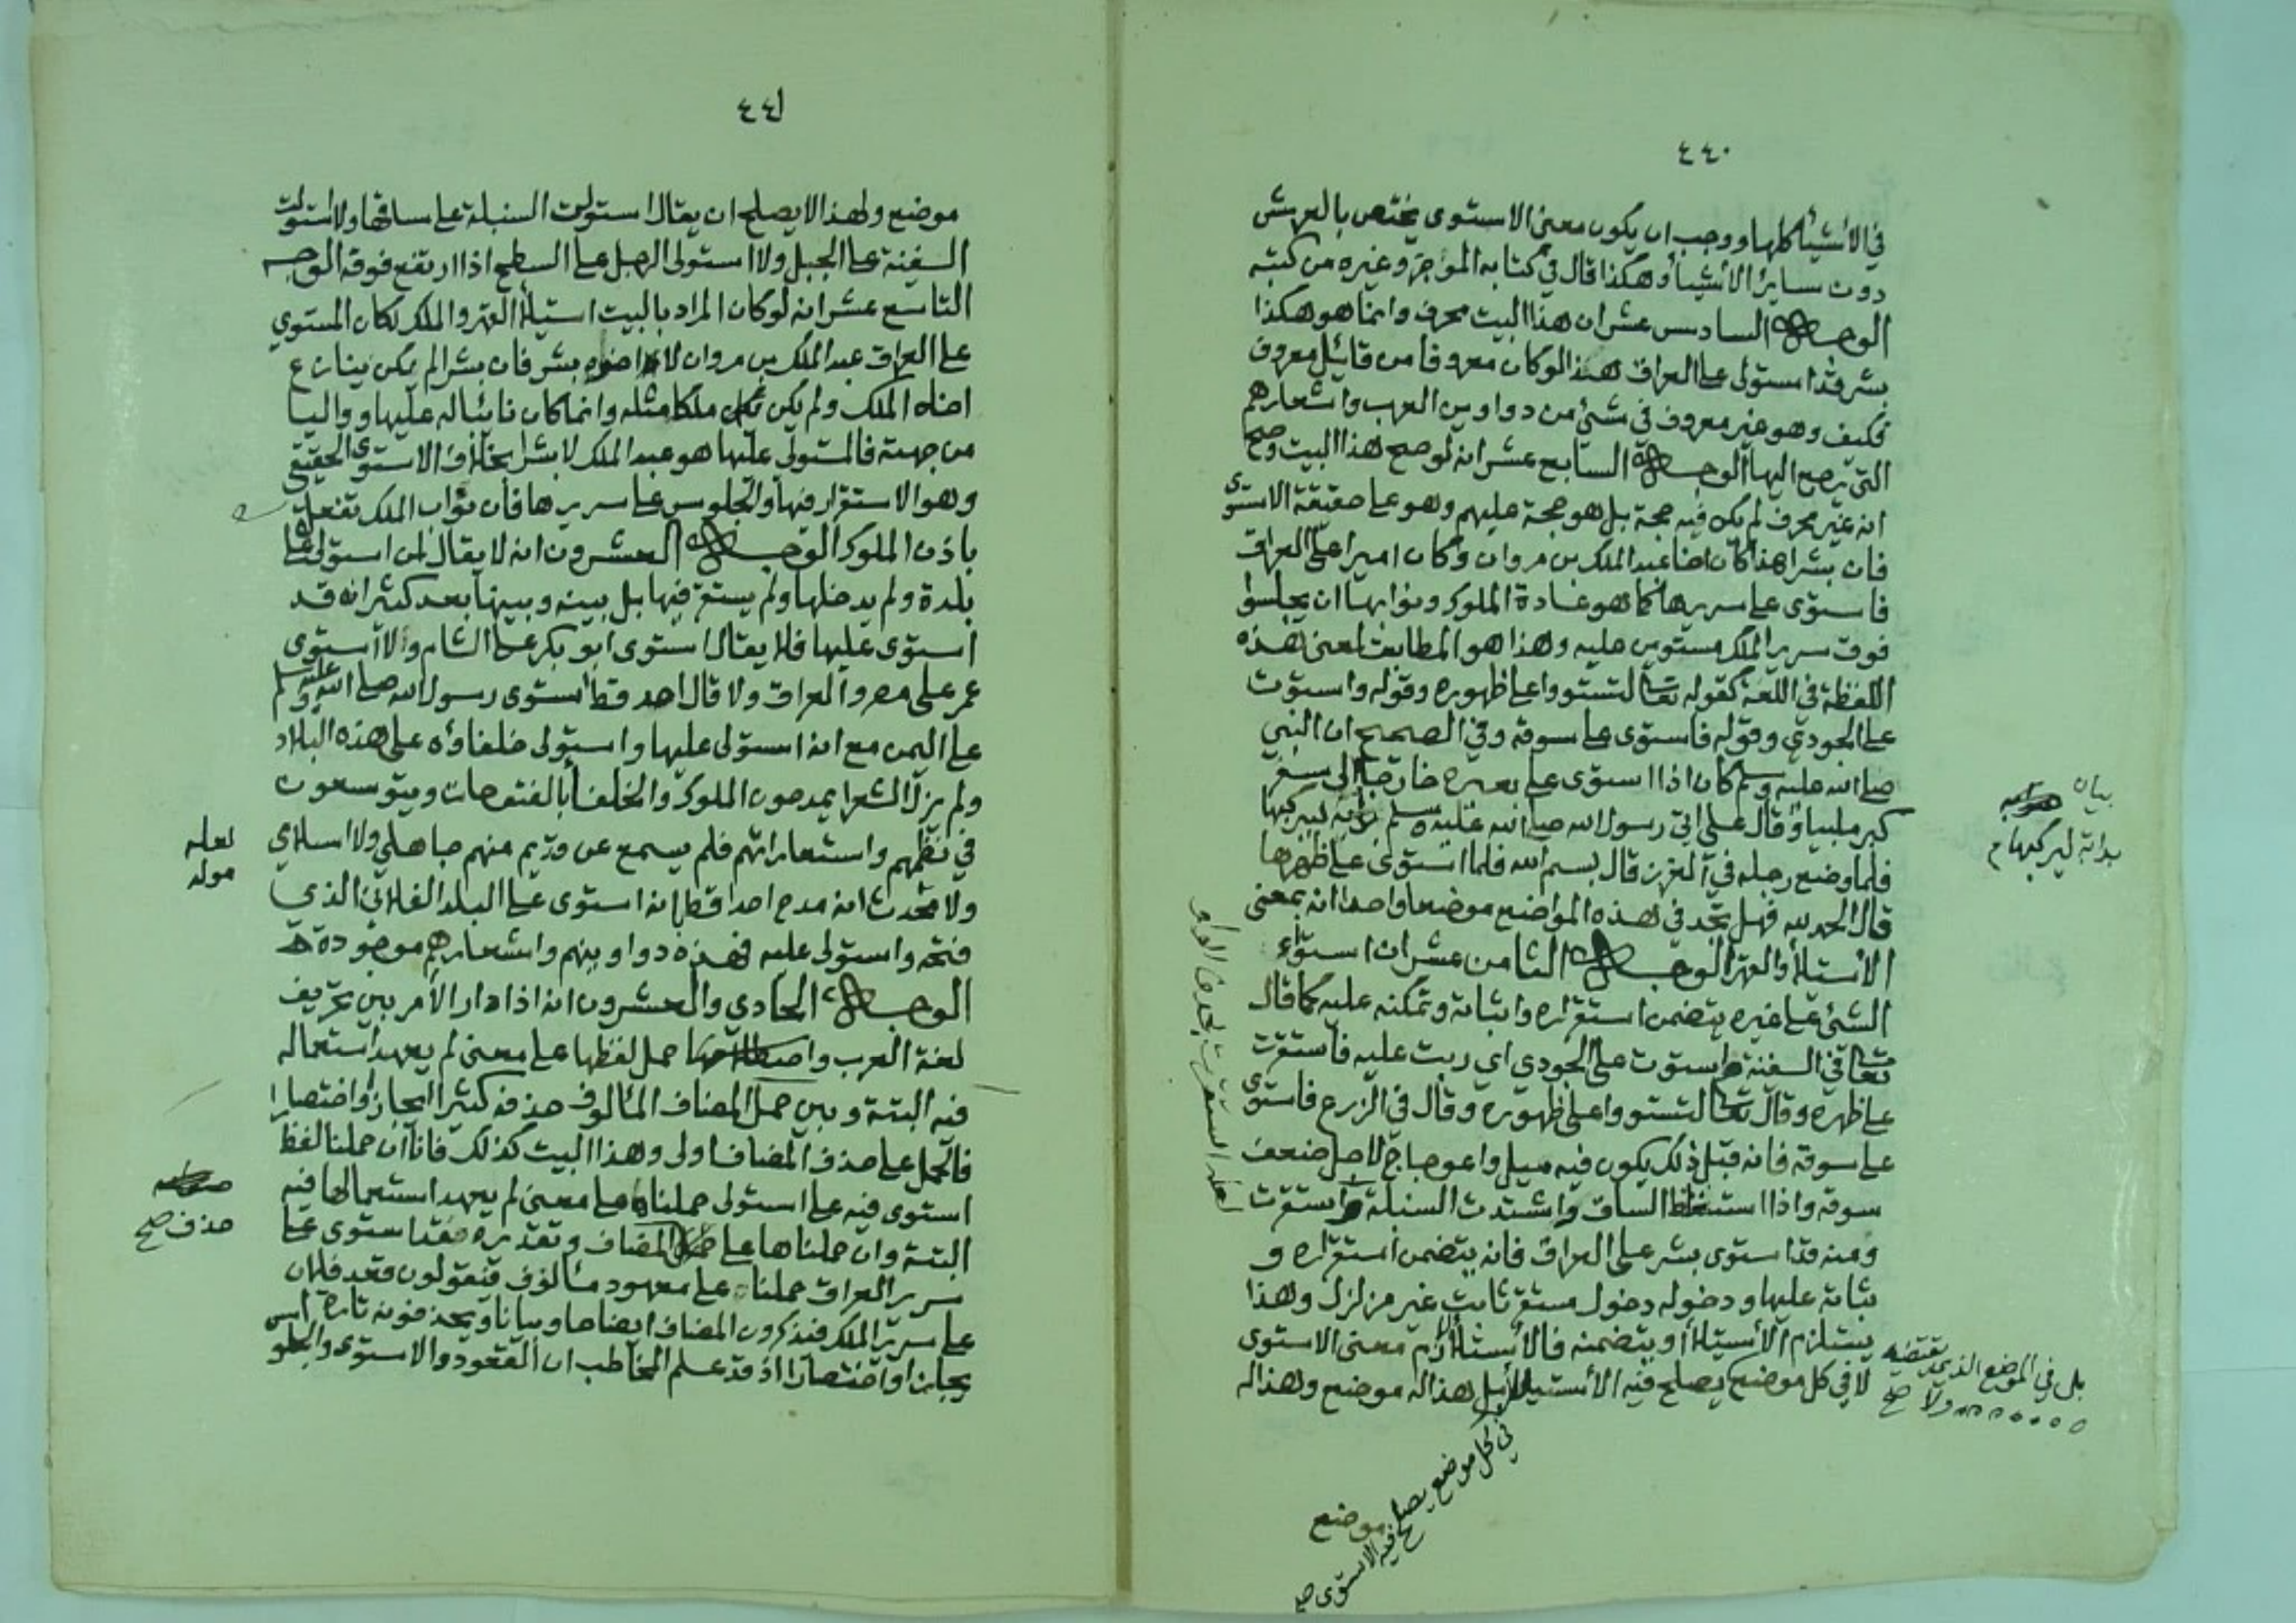 ٤٤٠
في الأشيأ كلها ووجب ان يكون معنى الاستوى يختص بالعرش
دون سايرُ الأشيأ وهكذا قال في كتابه المؤجز وغيره من كتبه
الوجه السادس عشر ان هذا البيت محرف وانما هو هكذا
بشر قد استولى على العراق هذا لو كان معروفا من قائيل معروف
فكيف وهو غير معروف في شيئ من دواوين العرب واشعارهم
التي يرجع اليها الوجه السابع عشر انه لو صح هذا البيت وصح
انه غير محرف لم يكن فيه حجة بل هو حجة عليهم وهو على حقيقة الاستوى
فان بشرا هذا كان اخا عبد الملك بن مروان وكان اميرا على العراق
فاستوى على سريرها كما هو عادة الملوك ونوابها ان يجلسوا
فوق سرير الملك مستوين عليه وهذا هو المطابق لمعنى هذه
اللفظة في اللغة كقوله تعالى لتستووا على ظهوره وقوله واستوت
على الجودي وقوله فاستوى على سوقه وفي الصحيح ان النبي
صلى الله عليه وسلم كان اذا استوى على بعيره خارجا الى سفر
كبر ملبيا وقال علي اتي رسول الله صلى الله عليه وسلم بدابة ليركبها
فلما وضع رجله في الغرز قال بسم الله فلما استوى على ظهرها
قال الحمد لله فهل تجد في هذه المواضع موضعا واحدا انه بمعنى
الأستيلأ والقهر الوجه الثامن عشر ان استوّاء
الشيئ على غيره يتضمن استقراره وثباته وتمكنه عليه كما قال
تعالى في السفنة واستوت على الجودي اي ربت عليه فاستقرت
على ظهره وقال تعالى لتستووا على ظهوره وقال في الزرع فاستوى
على سوقه فانه قبل ذلك يكون فيه ميل واعوجاج لاجل ضعف
سوقه واذا استغلظ الساق واشتدت السنبلة واستقرت
ومنه قد استوى بشر على العراق فانه يتضمن استقراره و
ثباته عليها ودخوله دخول مستقر ثابت غير مزلزل وهذا
يستلزم الأستيلأ او يتضمنه فالأستيلأ لازم معنى الاستوى
لا في كل موضع يصلح فيه الأستيلأ بل هذا له موضع ولهذا له
بيان
بدابة ليركبها م
لعله استقرت بحذف الواو
بل في الموضع الذي يقتضيه
ولا صح
في كل موضع يصلح فيه الاستوى صح
موضع
٤٤١
موضع ولهذا لا يصلح ان يقال استولت السنبلة على ساقها ولا استولت
السفينة على الجبل ولا استولى الرجل على السطح اذا ارتفع فوقه الوجه
التاسع عشر انه لو كان المراد بالبيت استيلأ القهر والملك لكان المستوي
على العراق عبد الملك بن مروان لا اخوه بشر فان بشرا لم يكن ينازع
اخاه الملك ولم يكن ملكا مثله وانما كان نائبا له عليها وواليا
من جهته فالمستولي عليها هو عبد الملك لا بشرا بخلاف الاستوى الحقيقي
وهو الاستقرار فيها والجلوس على سريرها فان نواب الملك تفعل
باذن الملوك الوجه العشرون انه لا يقال لمن استولى على
بلدة ولم يدخلها ولم يستقر فيها بل بينه وبينها بعد كثير انه قد
استوى عليها فلا يقال استوى ابو بكر على الشام ولا استوى
عمر على مصر والعراق ولا قال احد قط استوى رسول الله صلى الله عليه وسلم
على اليمن مع انه استولى عليها واستولى خلفاؤه على هذه البلاد
ولم يزل الشعرا يمدحون الملوك والخلفأ بالفتوحات ويتوسعون
في نظمهم واستعاراتهم فلم يسمع عن قديم منهم جاهلي ولا اسلامي
ولا محدث انه مدح احدا قط انه استوى على البلد الفلاني الذي
فتحه واستولى عليه فهذه دواوينهم واشعارهم موجودة
الوجه الحادي والعشرون انه اذا دار الأمر بين تحريف
لغة العرب وحمل لفظها على معنى لم يعهد استعماله
فيه البتة وبين حمل المضاف المألوف حذفه كثيرا ايجازا واختصارا
فالحمل على حذف المضاف اولى وهذا البيت كذلك فانا ان حملنا لفظ
استوى فيه على استولى حملناه على معنى لم يعهد استعمالها فيه
البتة وان حملناها على المضاف وتقديره قد استوى على
سرير العراق حملناه على معهود مألوف فيقولون قعد فلان
على سرير الملك فيذكرون المضاف ايضاحا وبيانا ويحذفونه تارة
ايجازا واختصارا اذ قد علم المخاطب ان القعود والاستوى والجلو
لعله
موله
حذف صح